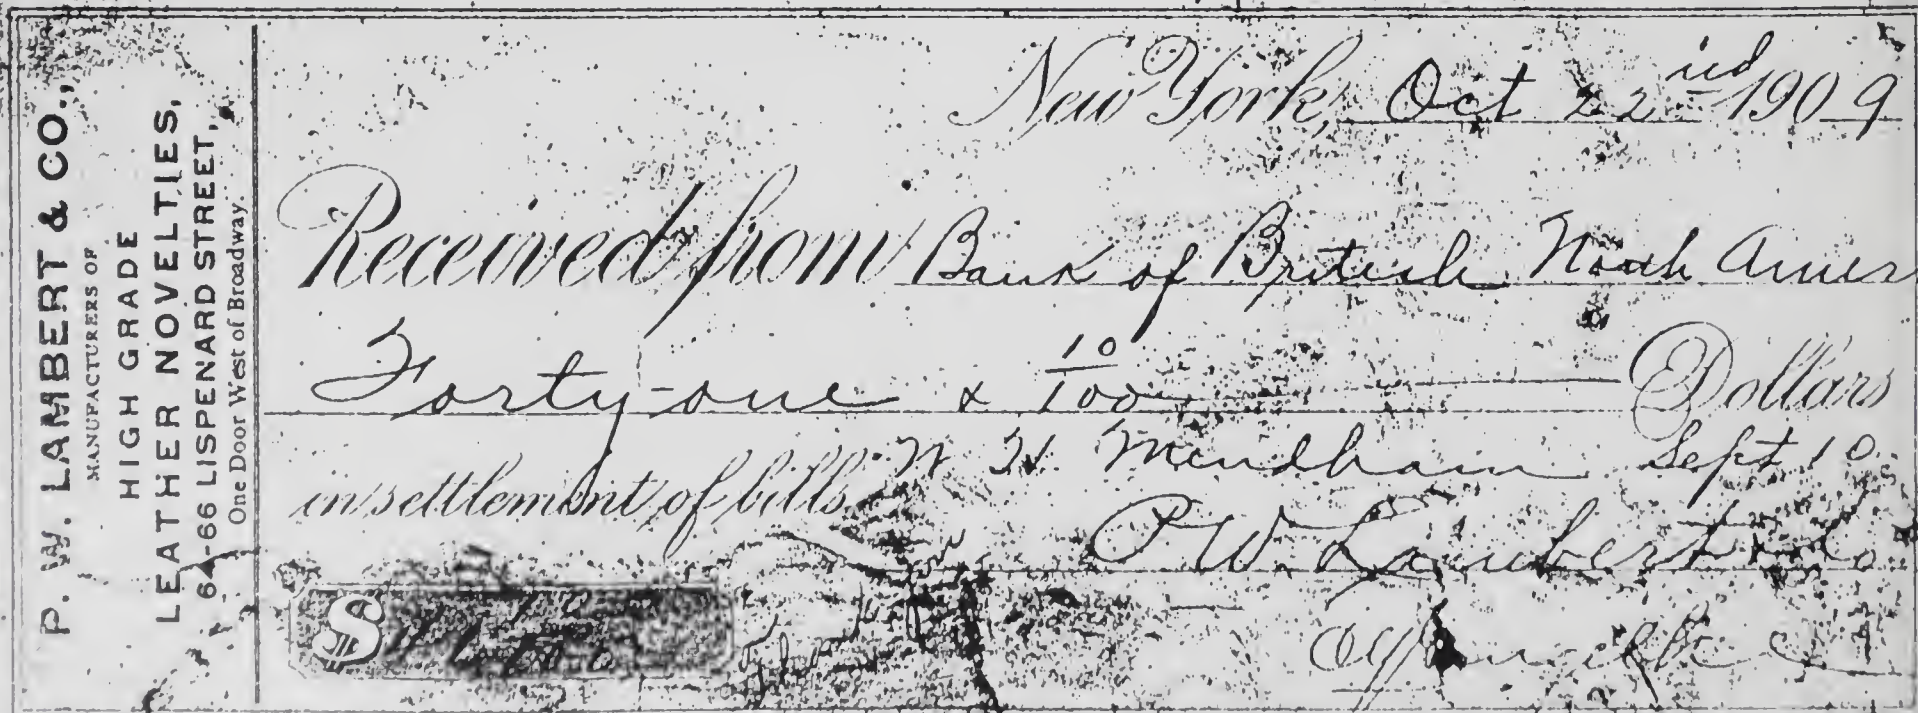 P. W. LAMBERT & CO.,
MANUFACTURERS OF
HIGH GRADE
LEATHER NOVELTIES,
64-66 LISPENARD STREET,
One Door West of Broadway.
New York, Oct 22nd 1909
Received from Bank of British North Amer
Forty-one & 10/100 Dollars
in settlement of bills. W. H. Mendham Sept 10
P W Lambert & Co
$